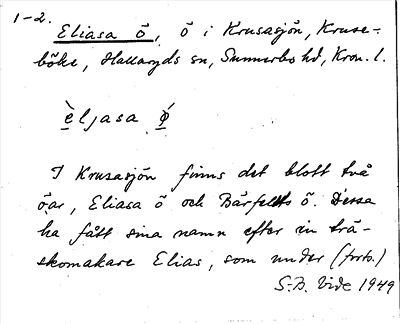 1-2.
Eliasa ö, ö i Krusasjön, Kruse-
böke, Hallaryds sn, Sunnerbo hd, Kron. l.
èljasa ǿ
I Krusasjön finns det blott två
öar, Eliasa ö och Bärfelts ö. Dessa
ha fått sina namn efter en trä-
skomakare Elias, som under (forts.)
S.B. Vide 1949